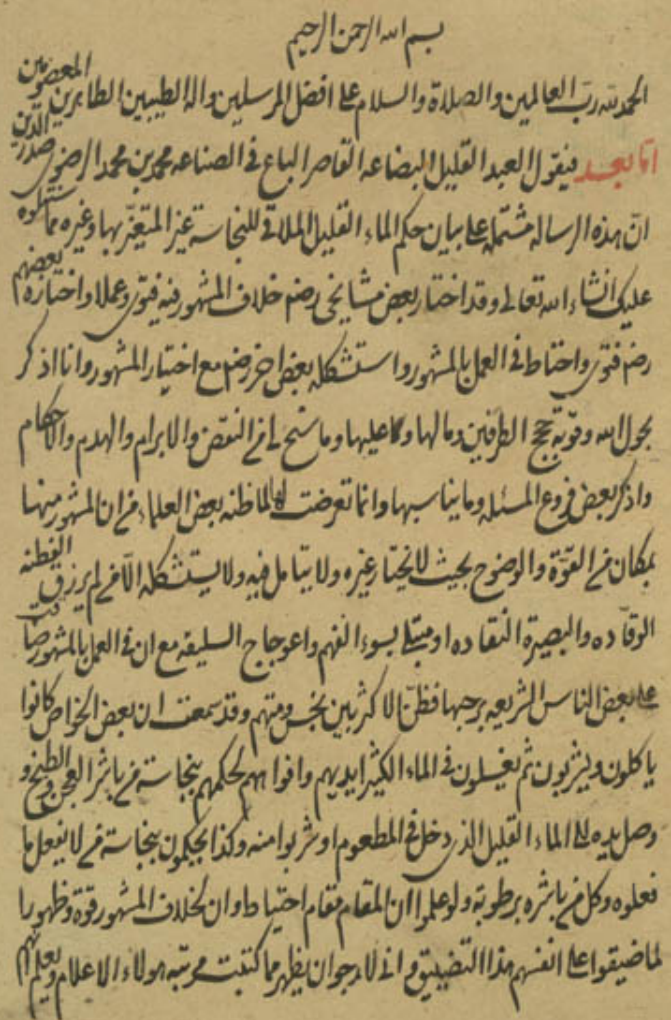 بسم الله الرحمن الرحيم
الحمد لله رب العالمين والصلاة والسلام على افضل المرسلين واله الطيبين الطاهرين المعصومين
اما بعد فيقول العبد القليل البضاعه القاصر الباع فى الصناعه محمد بن محمد الرضوى صدر الدين
ان هذه الرساله مشتمله على بيان حكم الماء القليل الملاقى للنجاسة غير المتغير بها وغيره مما ستتلوه
عليك انشاء الله تعالى وقد اختار بعض مشايخى رضم خلاف المشهور فيه فتوى وعملا واختاره بعضهم
رضم فتوى واحتاط فى العمل بالمشهور واستشكله بعض اخر رضم مع اختيار المشهور وانا اذكر
بحول الله وقوته حجج الطرفين ومالها وما عليها وما سنح لى من النقض والابرام والهدم والاحكام
واذكر بعض فروع المسئله وما يناسبها وانما تعرضت لها لما ظنه بعض العلماء من ان المشهور منها
بمكان من القوة والوضوح بحيث لا يختار غيره ولا يتامل فيه ولا يستشكله الا من لم يرزق الفطنه
الوقاده والبصيرة النقاده او مبتلى بسوء الفهم واعوجاج السليقه مع ان فى العمل بالمشهور ضاقت
على بعض الناس الشريعه برحبها فظن الاكثر بين نجس ومتهم وقد سمعت ان بعض الخواص كانوا
ياكلون ويشربون ثم يغسلون فى الماء الكثير ايديهم وافواههم لحكمهم بنجاسة من باشر العجن والطبخ و
وصل يده الى الماء القليل الذى دخل فى المطعوم او شربوا منه وكذا يحكمون بنجاسة من لا يفعل ما
فعلوه وكل من باشره برطوبة ولو علموا ان المقام مقام احتياط وان لخلاف المشهور قوة وظهورا
لما ضيقوا على انفسهم هذا التضييق وانى لارجو ان يظهر مما كتبت مرتبه هولاء الاعلام ويعلم انهم